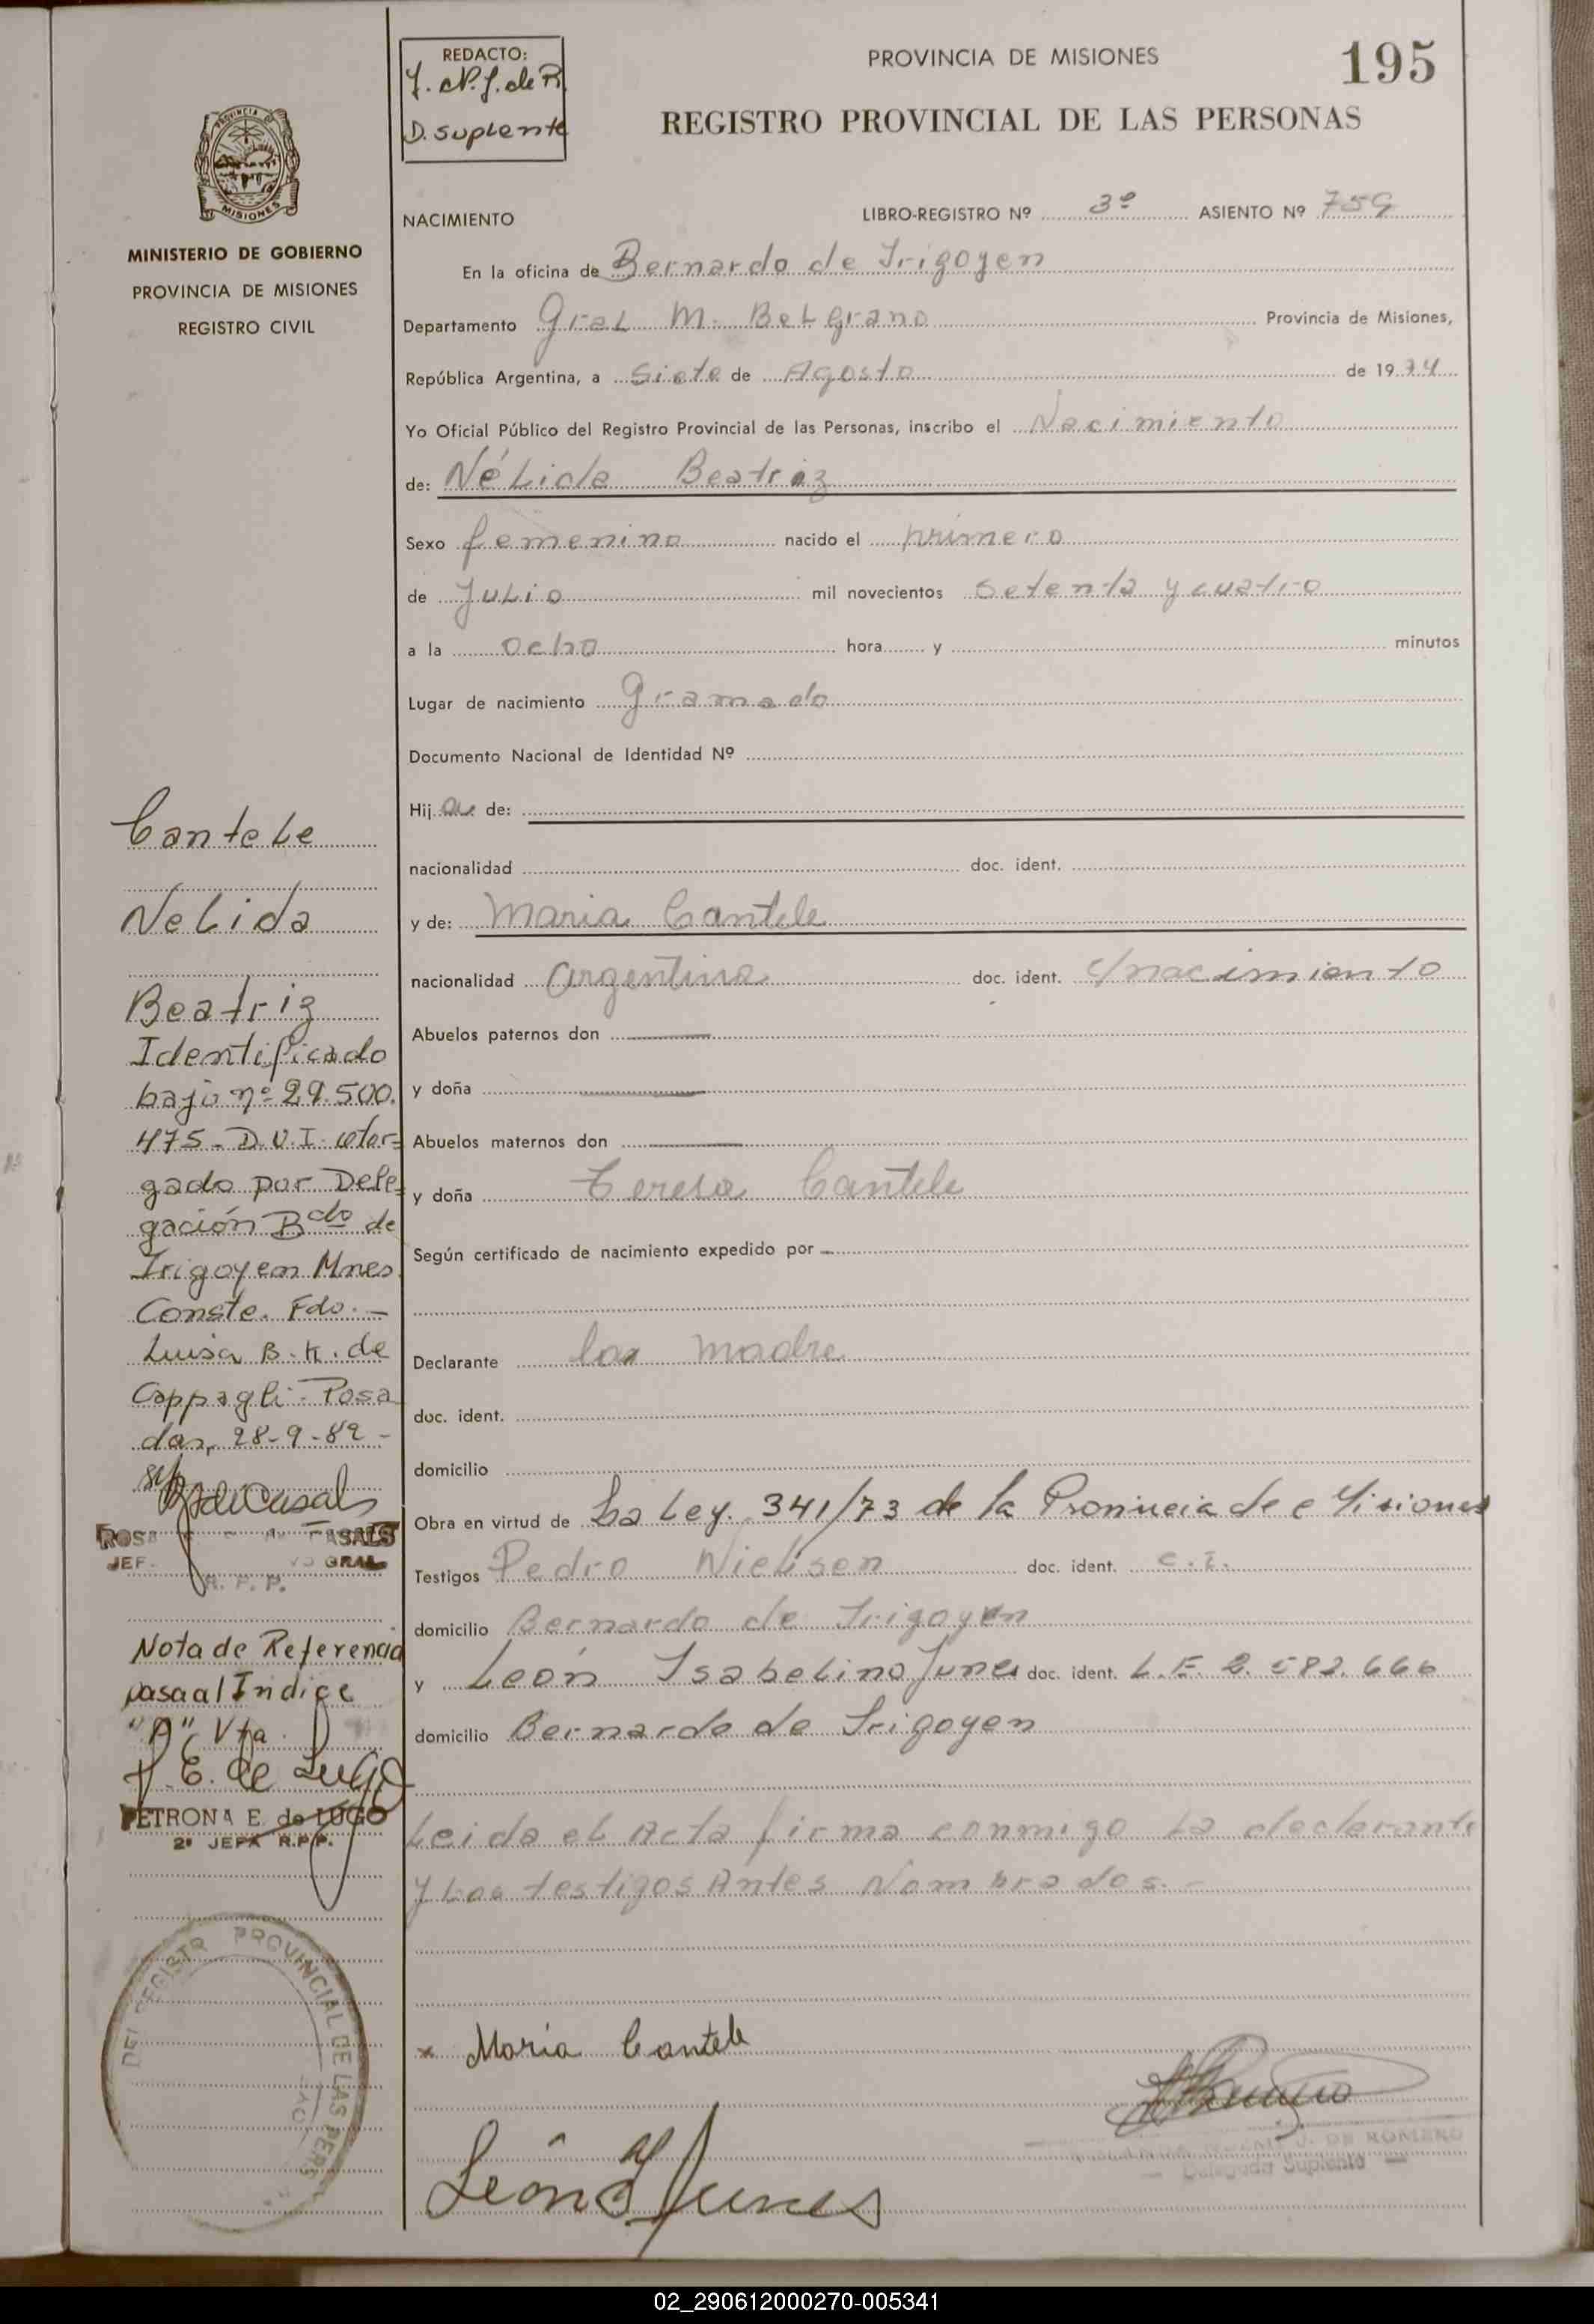 REDACTO:
D. suplente
PROVINCIA DE MISIONES
195
REGISTRO PROVINCIAL DE LAS PERSONAS
PROVINCIA DE
MISIONES
MINISTERIO DE GOBIERNO
PROVINCIA DE MISIONES
REGISTRO CIVIL
NACIMIENTO
LIBRO-REGISTRO Nº 3º ASIENTO Nº 759
En la oficina de Bernardo de Irigoyen
Departamento Gral M. Belgrano Provincia de Misiones,
República Argentina, a Siete de Agosto de 1974
Yo Oficial Público del Registro Provincial de las Personas, inscribo el Nacimiento
de: Nélida Beatriz
Sexo femenino nacido el primero
de Julio mil novecientos setenta y cuatro
a la ocho hora y minutos
Lugar de nacimiento Gramado
Documento Nacional de Identidad Nº
Hija de:
nacionalidad doc. ident.
y de: Maria Cantele
nacionalidad Argentina doc. ident. c/nacimiento
Abuelos paternos don
y doña
Abuelos maternos don
y doña Teresa Cantele
Según certificado de nacimiento expedido por
Declarante la madre
doc. ident.
domicilio
Obra en virtud de La Ley. 341/73 de la Provincia de Misiones
Testigos Pedro Nielsen doc. ident. C.I.
domicilio Bernardo de Irigoyen
y León Isabelino Junes doc. ident. L.E 2.582.666
domicilio Bernardo de Irigoyen
Leida el Acta firma conmigo La declarante
y Los testigos Antes Nombrados.-
x Maria Cantele
León Y Junes
J. DE ROMERO
Delegada Suplente
Cantele
Nelida
Beatriz
Identificado
bajo nº 29.500.
475 - D.U.I. otor-
gado por Dele-
gación Bdo de
Irigoyen Mnes.
Conste. Fdo. -
Luisa B. K. de
Cappagli - Posa
das, 28-9-82 -
ROSA CASALS
JEF. GRAL.
R. P. P.
Nota de Referencia
pasa al Indice
"A", Vta.
P. E. de Lugo
PETRONA E. de LUGO
2º JEFA R.P.P.
DEL REGISTR PROVINCIAL DE LAS PERS
02_290612000270-005341